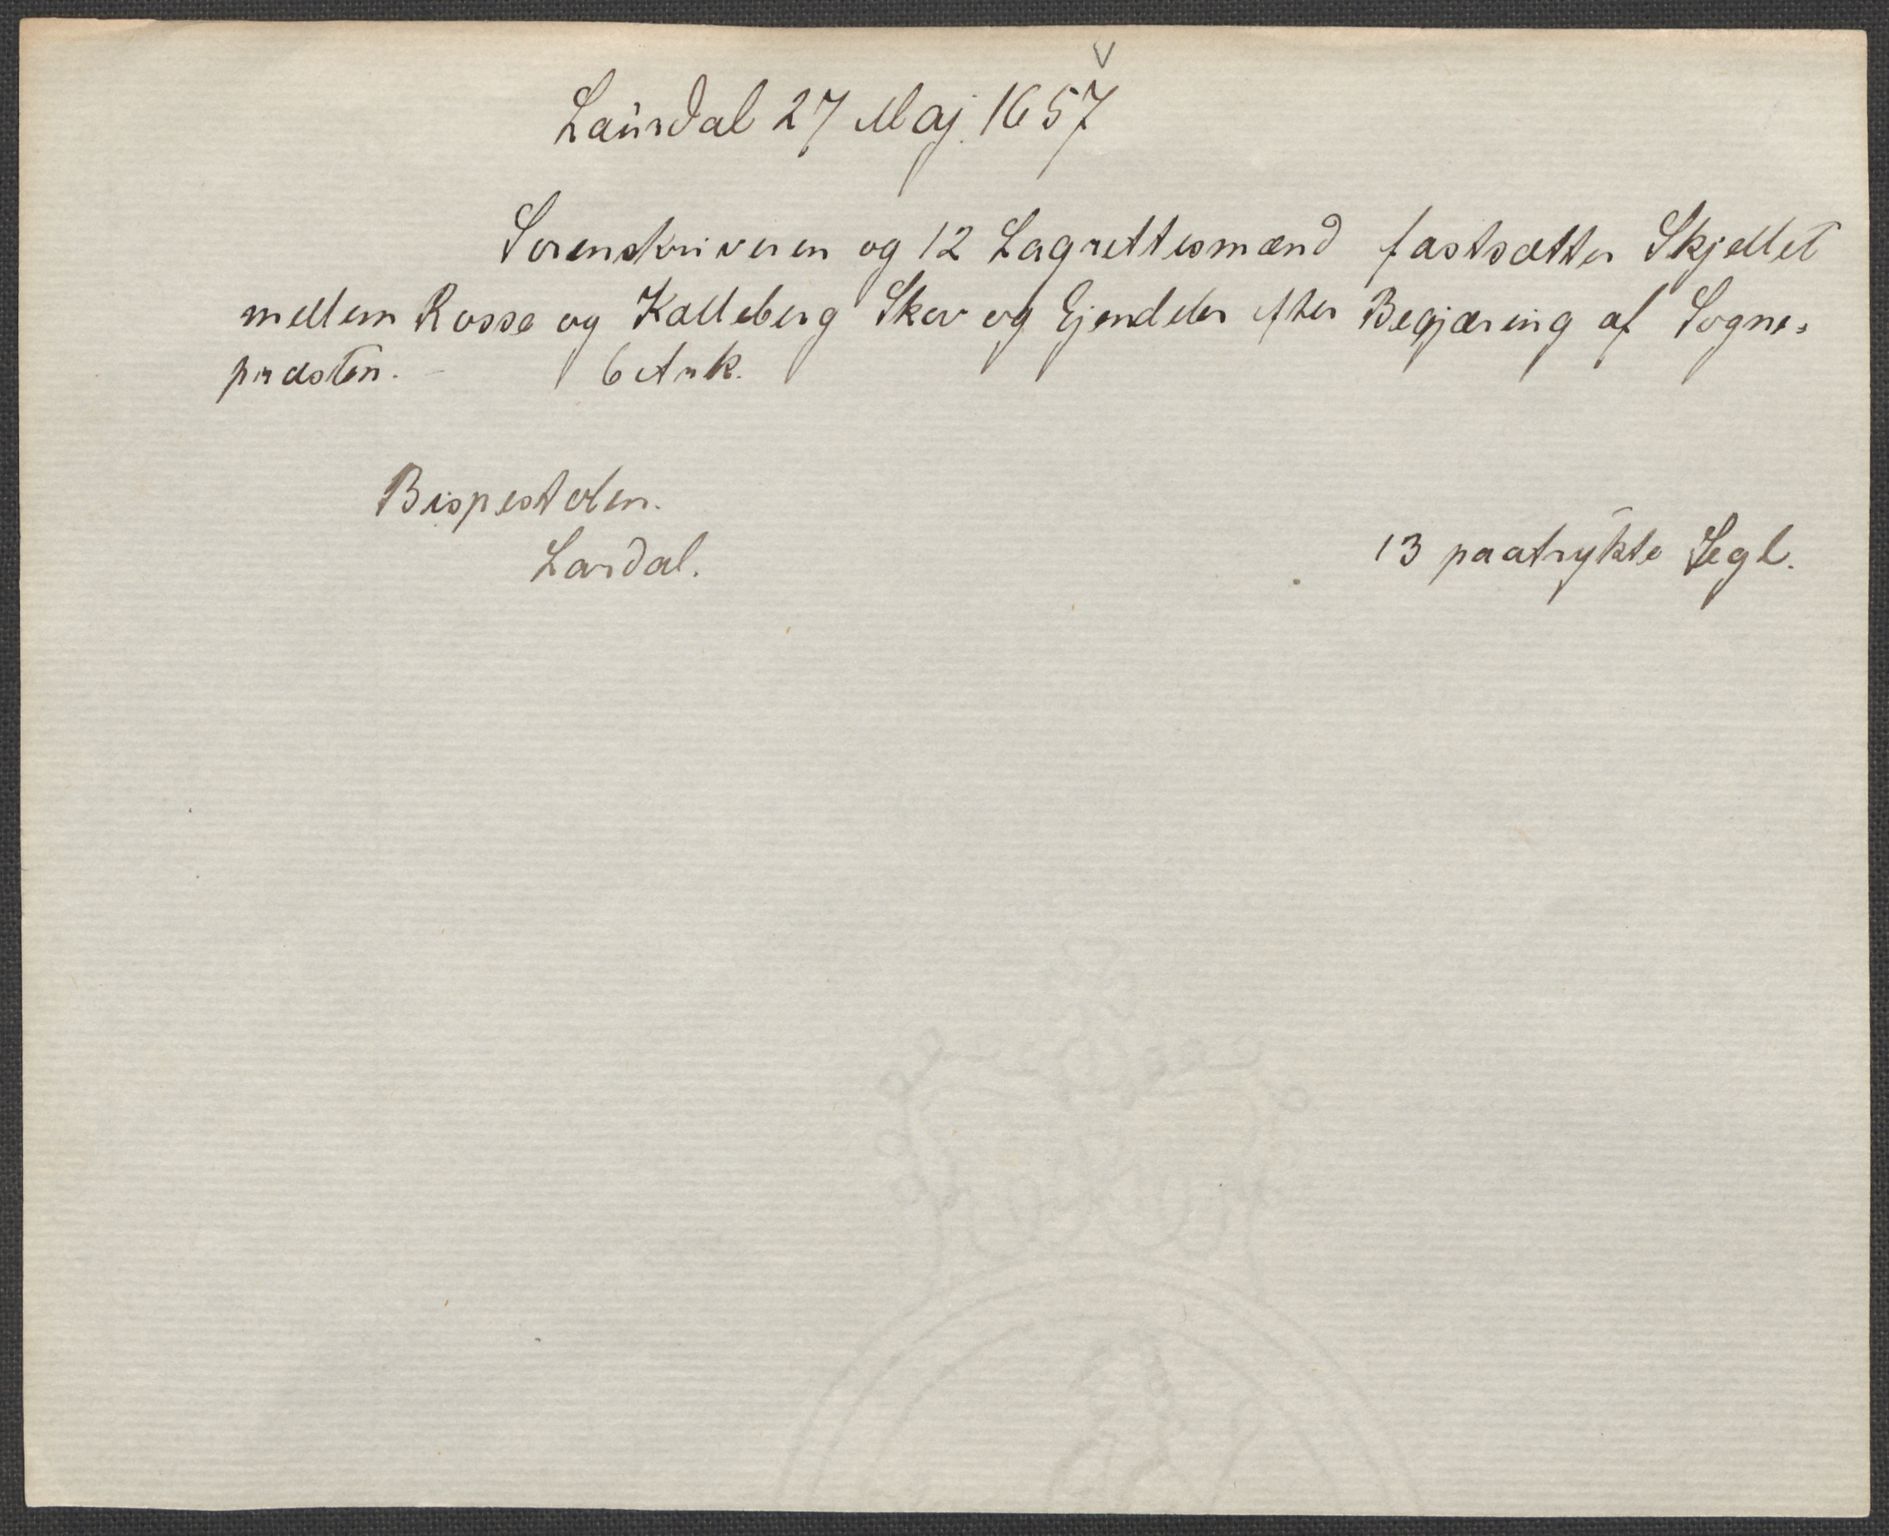 Laurdal 27 Maj 1657
Sorenskriveren og 12 Lagrettesmænd fastsætter Skjellet
mellem Rosse og Kalleberg Skov og Ejendeler efter Begjæring af Sogne-
præsten. - 6 Ark.
Bispestolen.
Lardal.
13 paatrykte Segl.